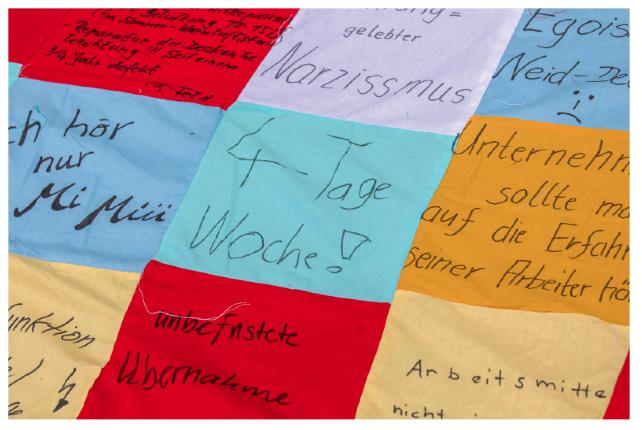 - Reparatur der Decken
leuchtung !!! Seit einem
3/4 Jahr defekt
gelebter
Narzissmus
Egois
Neid-De
ch hör
nur
Mi Miiii
4-Tage
Woche!
Unternehm
sollte ma
auf die Erfahr
seiner Arbeiter hö
unktion
unbefristete
Übernahme
Arbeitsmitte
nicht